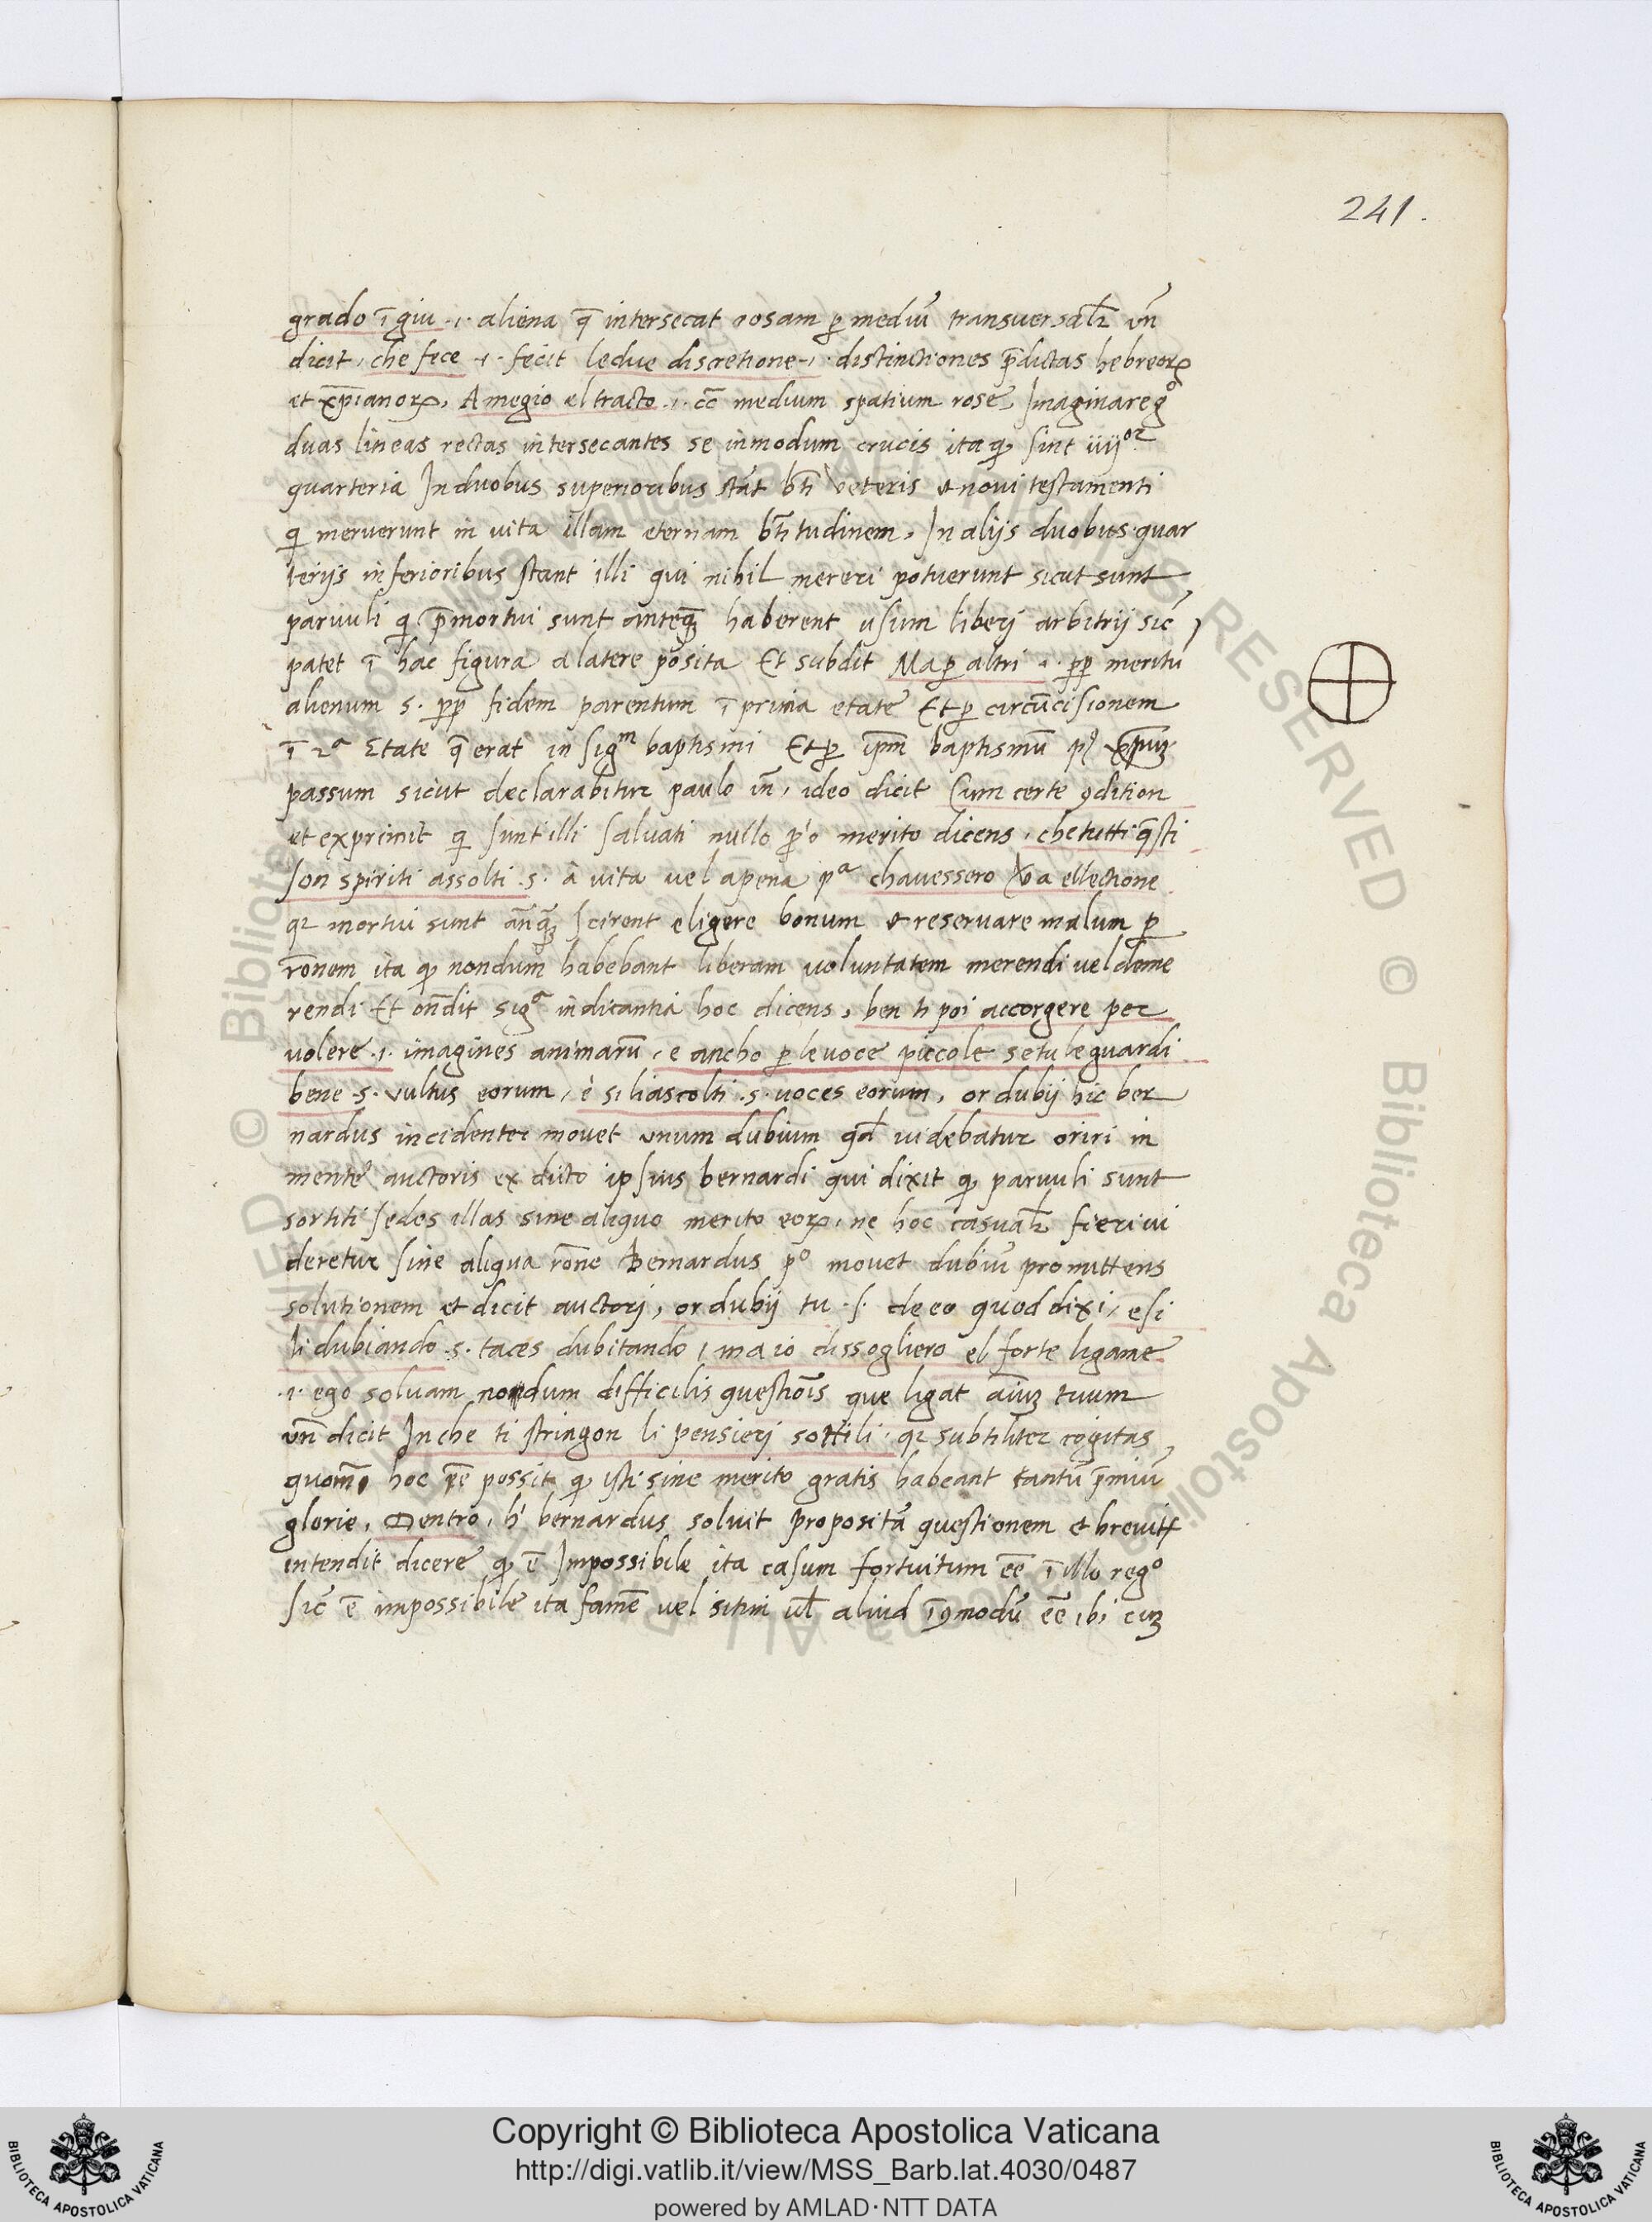 241.
grado ī giu .i. aliena q̄ intersecat rosam ꝑ mediū transuersalr̄ vn̄
dicit, che fece .i. fecit ledue discretione .i. distinctiones p̄dictas hebreorꝫ
et xp̄ianorꝫ, A megio el tracto .i. cc̄ medium spatium rose, Imaginare gͦ
duas lineas rectas intersecantes se inmodum crucis ita qꝫ sint iiijᵒʳ
quarteria In duobus superioribus stāt bt̄i veteris et noui testamenti
qi meruerunt in vita illam eternam bt̄itudinem, In alijs duobus quar
terijs inferioribus stant illi qui nihil mereri potuerunt sicut sunt
paruuli qi p̄mortui sunt anteqꝫ haberent usum liberj arbitrij sic̄
patet ī hac figura a latere posita Et subdit Ma ꝑ altri .i. ꝓp meritū
alienum s. ꝓp fidem parentum ī prima etate Et ꝑ circūcisionem
ī 2ᵃ Etate q̄ erat in sigᵐ baptismi Et ꝑ ip̄m baptismū pꝰ xp̄uꝫ
passum sicut declarabitur paulo in̄, ideo dicit Cum certe ꝯdition
et exprimit qi sunt illi saluati nullo ꝓ'o merito dicens, che tutti q̄sti
son spiriti assolti .s. a vita uel apena pᵃ chauessero va ellectione
qꝛ mortui sunt an̄qꝫ scirent eligere bonum et reseruare malum ꝑ
rōnem ita qꝫ nondum habebant liberam voluntatem merendi uel deme
rendi Et on̄dit sigᵃ indicantia hoc dicens, ben ti poi accorgere per
volere .i. imagines animarū, e ancho ꝑ le voce piccole se tu le guardi
bene .s. vultus eorum, è si li ascolti .s. voces eorum, or dubij hic ber
nardus incidenter mouet unum dubium qd̄ uidebatur oriri in
mente auctoris ex dicto ipsius bernardi qui dixit qꝫ paruuli sunt
sortiti sedes illas sine aliquo merito eorꝫ, ne hoc casualr̄ fieri ui
deretur sine aliqua rōne Bernardus pͦ mouet dubiū promittens
solutionem et dicit auctorj, or dubij tu .s. de eo quod dixi, e si
li dubiando .s. taces dubitando, ma io dissogliero el forte ligame
.i. ego soluam nodum difficilis questiōis que ligat aīuꝫ tuum
vn̄ dicit In che ti stringon li pensierj sottili, qꝛ subtiliter cogitas
quomō hoc eē possit qꝫ isti sine merito gratis habeant tantū p̄miū
glorie, Dentro, h' bernardus soluit propositā questionem et breuitꝫ
intendit dicere qꝫ ē Impossibile ita casum fortuitum eē ī illo regͦ
sic̄ ē impossibile ita famē uel sitim ul̄ aliud īꝯmodū eē ibi cuꝫ
Copyright © Biblioteca Apostolica Vaticana
http://digi.vatlib.it/view/MSS_Barb.lat.4030/0487
powered by AMLAD·NTT DATA